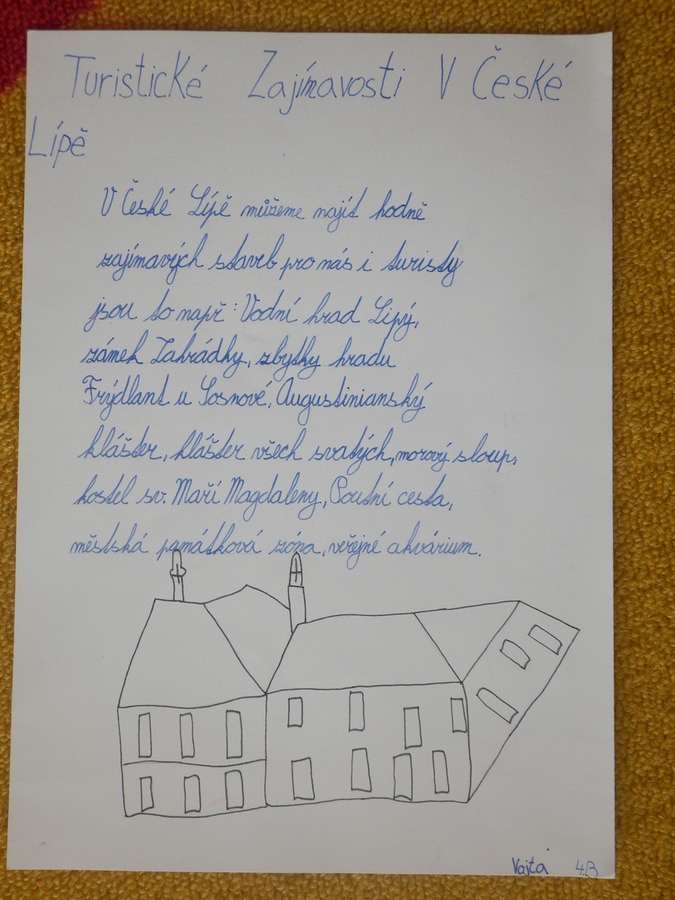 Turistické Zajímavosti V České
Lípě
V České Lípě můžeme najít hodně
zajímavých staveb pro nás i turisty
jsou to např: Vodní hrad Lipý,
zámek Zahrádky, zbytky hradu
Frýdlant u Sosnové, Augustinianský
klášter, klášter všech svatých, morový sloup,
kostel sv. Maří Magdaleny, Poutní cesta,
městská památková zóna, veřejné akvárium.
Vojta 4.B